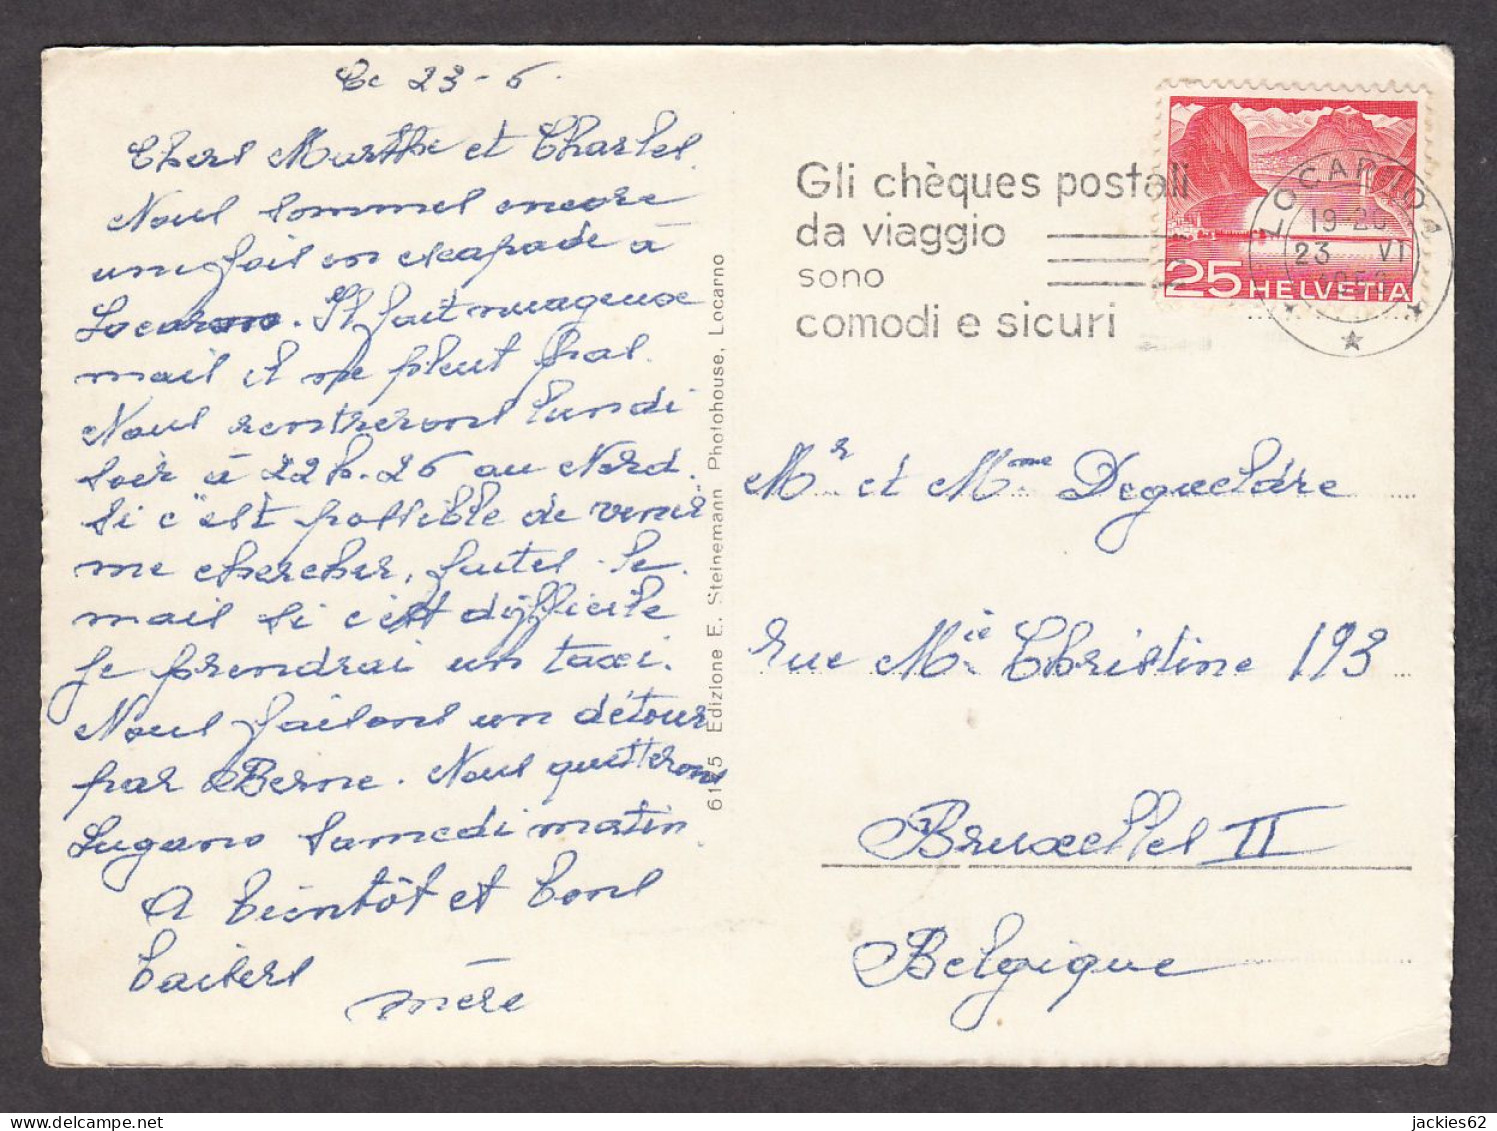 Le 23-6.
Chers Marthe et Charles.
Nous sommes encore
une fois en escapade à
Locarno. Il fait nuageux
mais il ne pleut pas.
Nous rentrerons lundi
soir à 22h.26 au Nord.
Si c'est possible de venir
me chercher, faites-le.
mais si c'est difficile
je prendrai un taxi.
Nous faisons un détour
par Berne. Nous quitterons
Lugano samedi matin
A bientôt et bons
baisers
mère
6125 Edizione E. Steinemann Photohouse, Locarno
Gli chèques postali
da viaggio
sono
comodi e sicuri
25 HELVETIA
LOCARNO 1
19-20
23 VI
Mr et Mme Degueldre
rue Mie Christine 193
Bruxelles II
Belgique
jackies62